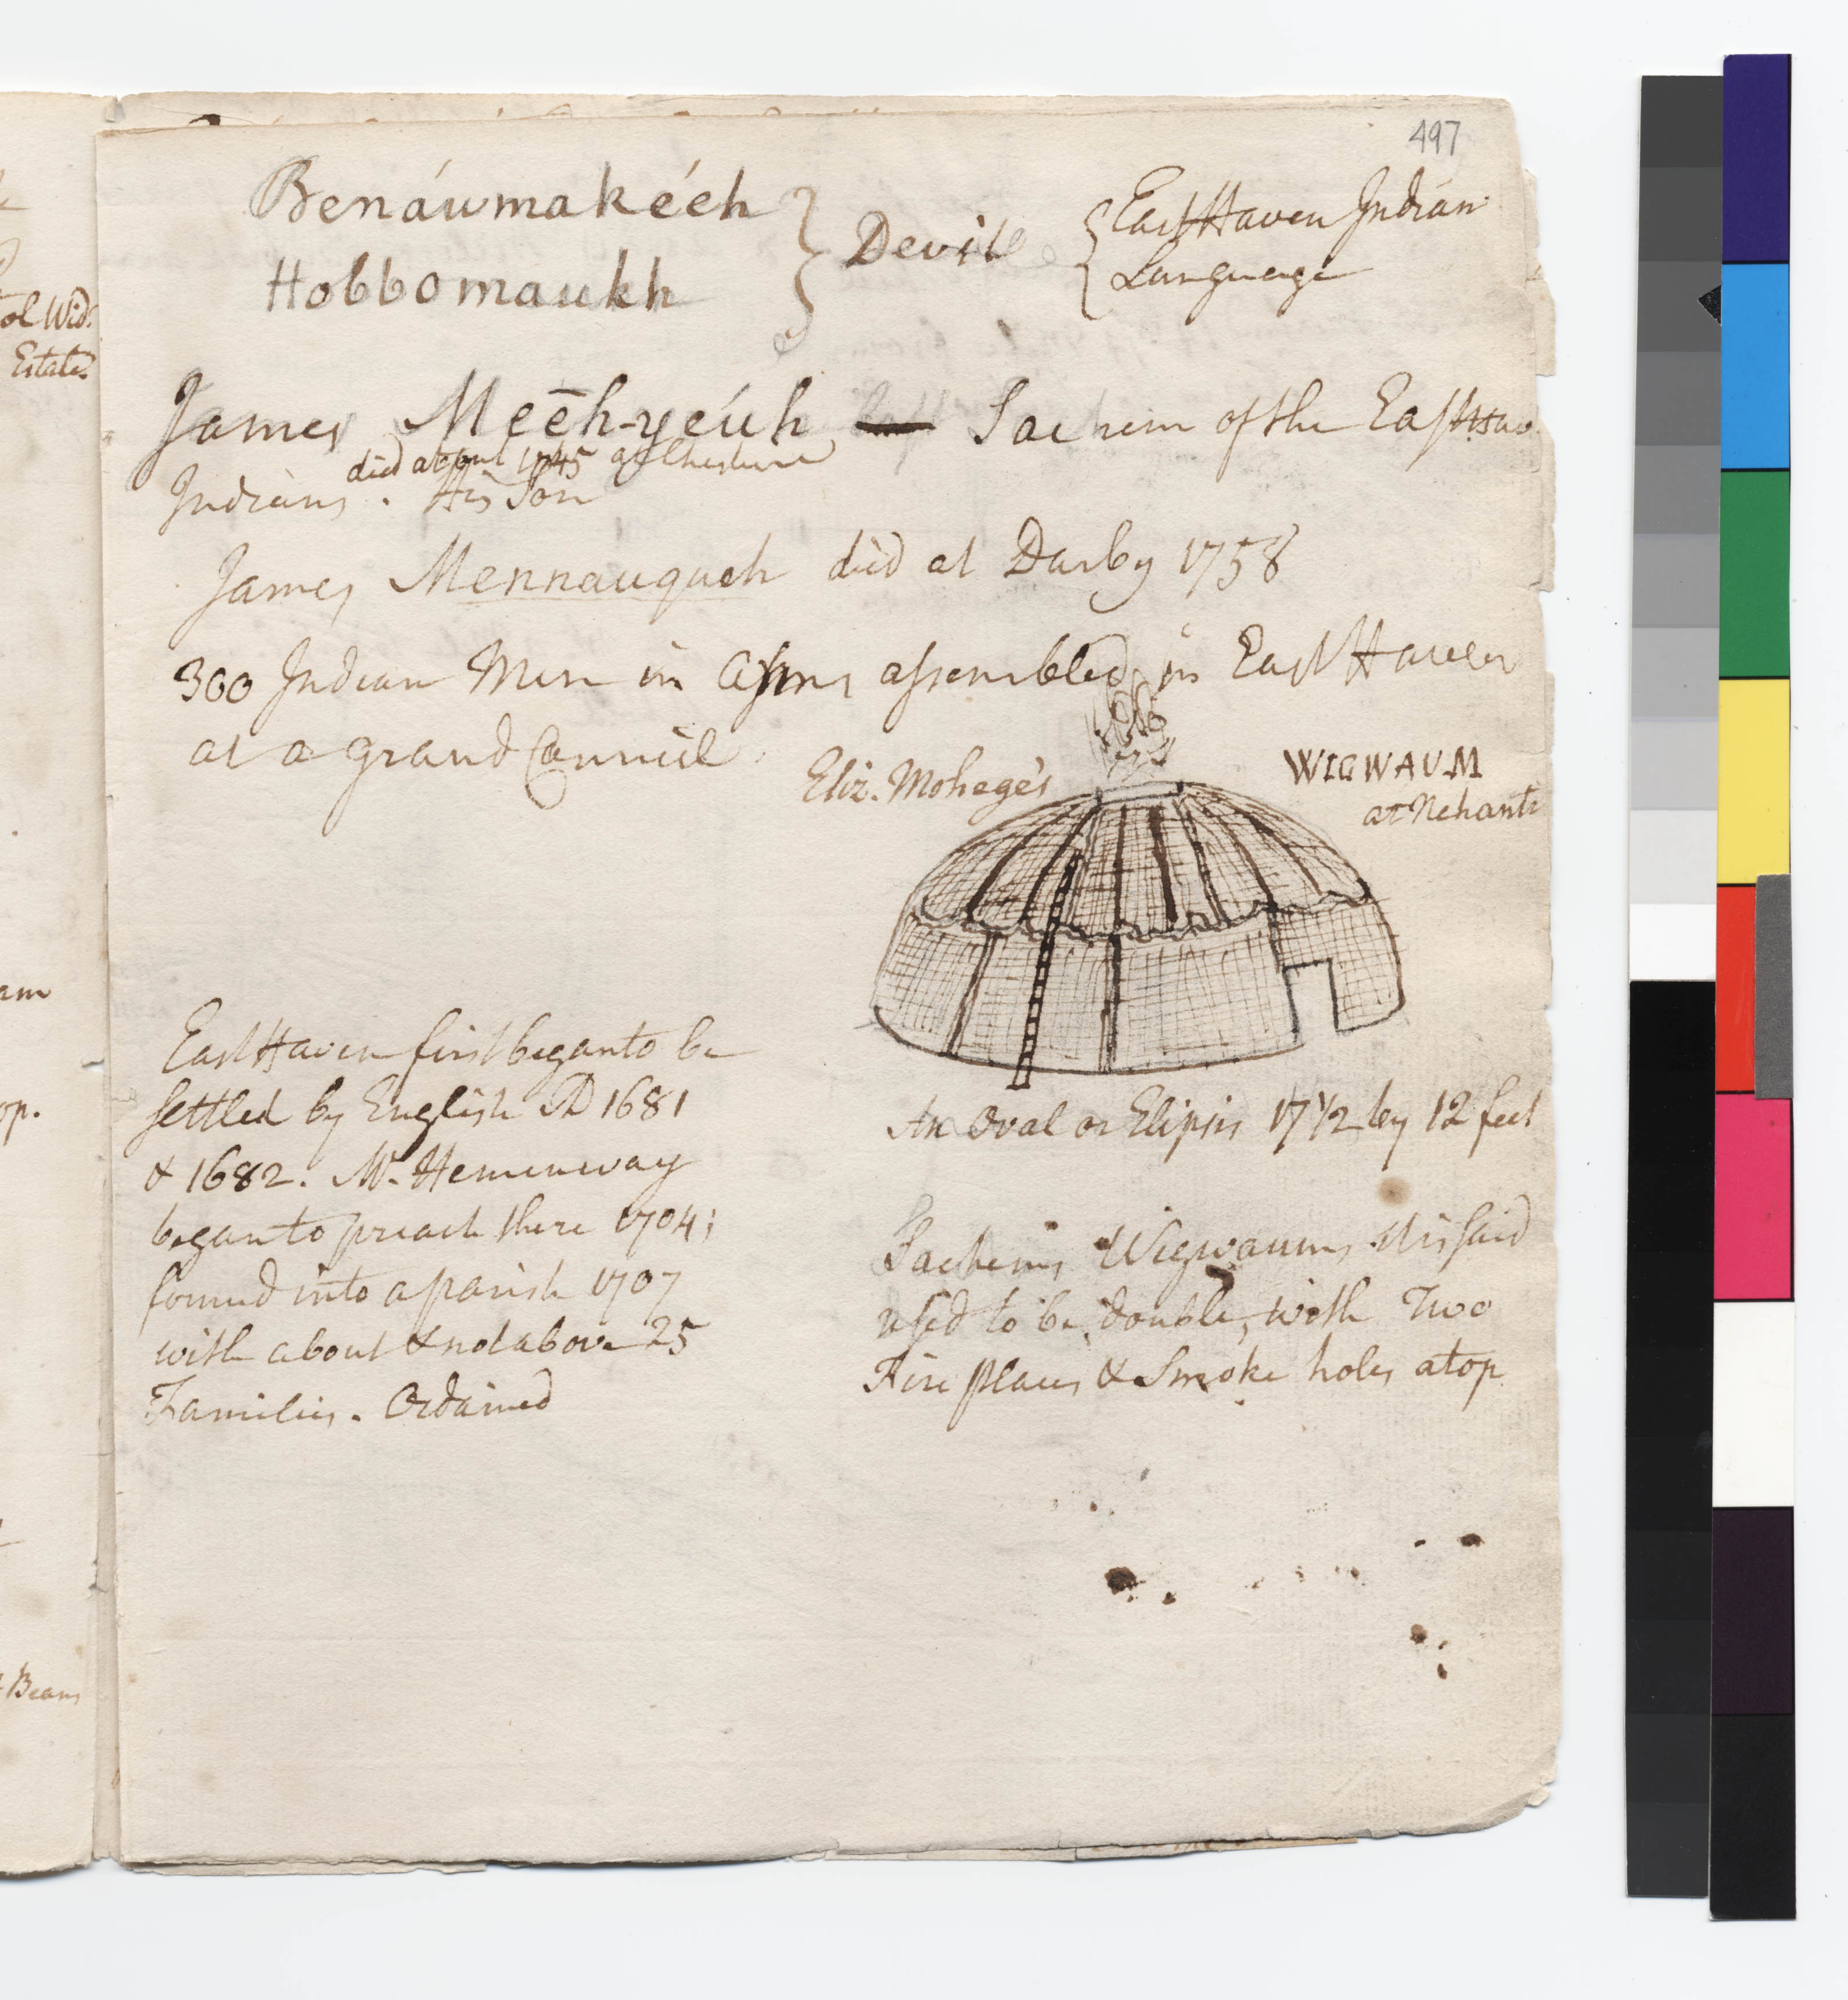 ol Wid:
Estate.
am
op.
Beans
497
Benáwmakéeh } Devil { East Haven Indian
Hobbomaukh Language
James Meēh-yeúh Sachem of the East Hav.
died about 1745 at Cheshire
Indians. His Son
James Mennauquch died at Darby 1758
300 Indian Men in Arms assembled in East Haven
at a grand Council.
Eliz. Mohege's
WIGWAUM
at Nehanti
East Haven first began to be
settled by English AD 1681
& 1682. Mr. Hemenway
began to preach there 1704;
formed into a parish 1707
with about & not above 25
Families. Ordained
An Oval or Elipsis 17 1/2 by 12 feet
Sachems Wigwaums, tis said
used to be double, with Two
Fire places & Smoke holes atop